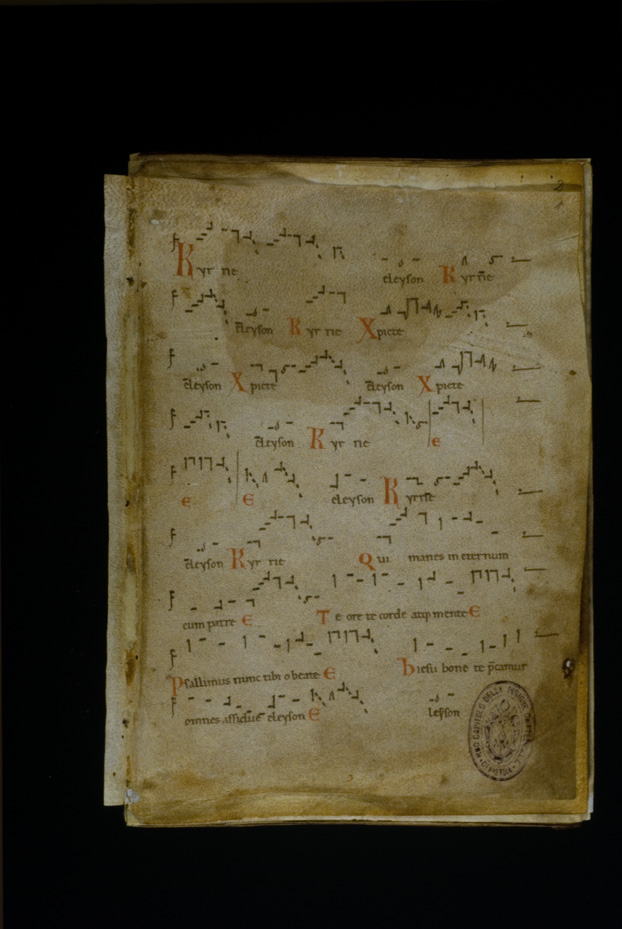 Kyr rie eleyson Kyrrie
eleyson Kyr rie Xpicte
eleyson Xpicte eleyson Xpicte
eleyson Kyr rie e
e E eleyson Kyrrie
eleyson Kyr rie Qui manes in eternum
cum patre E Te ore te corde atqꝫ mente E
Psallimus nunc tibi o beate E hiesu bone te p̄camur
omnes assidue eleyson E leyson